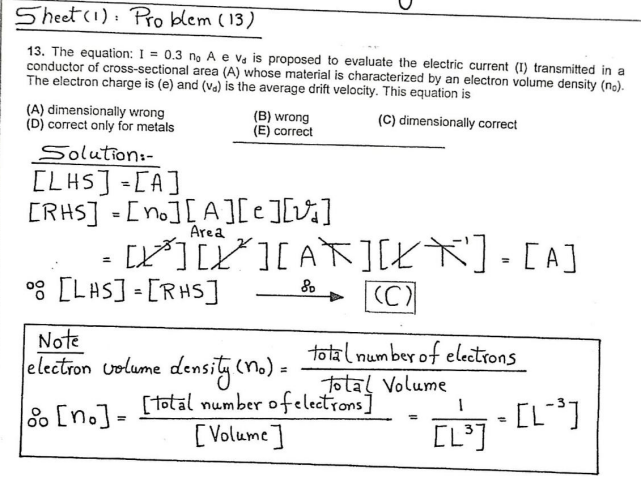 Sheet(1): Problem (13)
13. The equation: I = 0.3 n₀ A e v_d is proposed to evaluate the electric current (I) transmitted in a
conductor of cross-sectional area (A) whose material is characterized by an electron volume density (n₀).
The electron charge is (e) and (v_d) is the average drift velocity. This equation is
(A) dimensionally wrong (B) wrong (C) dimensionally correct
(D) correct only for metals (E) correct
Solution:-
[LHS] = [A]
[RHS] = [n₀][A][e][v_d]
Area
= [L⁻³][L²][AT][LT⁻¹] = [A]
∴ [LHS] = [RHS] ∴→ (C)
Note
electron volume density (n₀) = total number of electrons / Total Volume
∴ [n₀] = [Total number of electrons] / [Volume] = 1 / [L³] = [L⁻³]